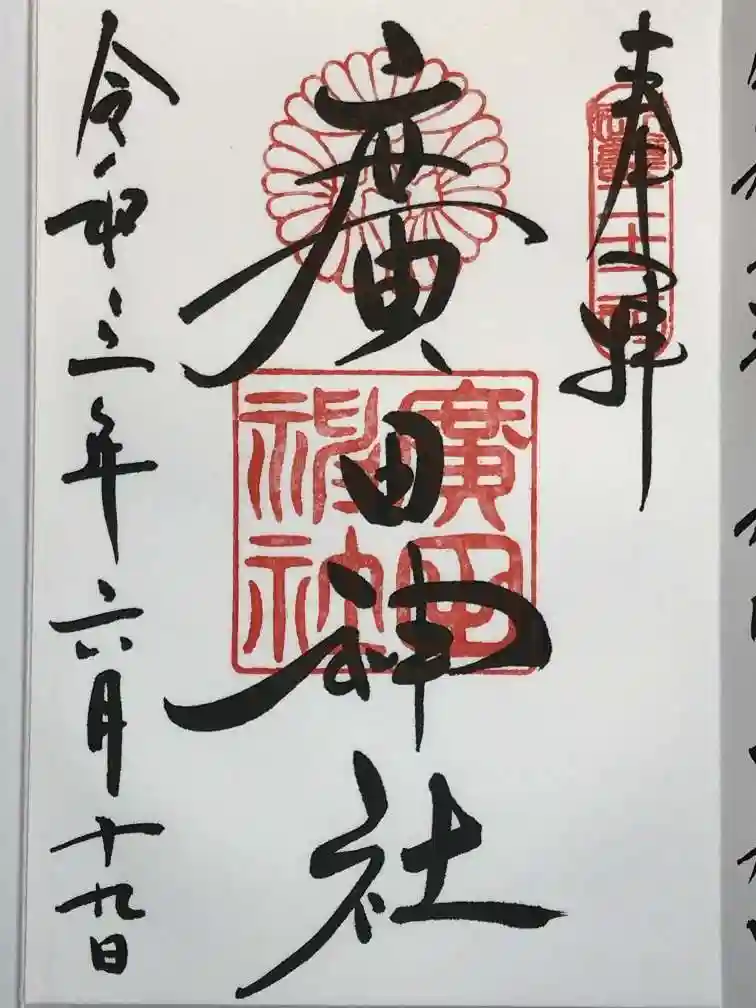 奉拝
二十二社
廣田神社
廣田
神社
令和三年六月十九日